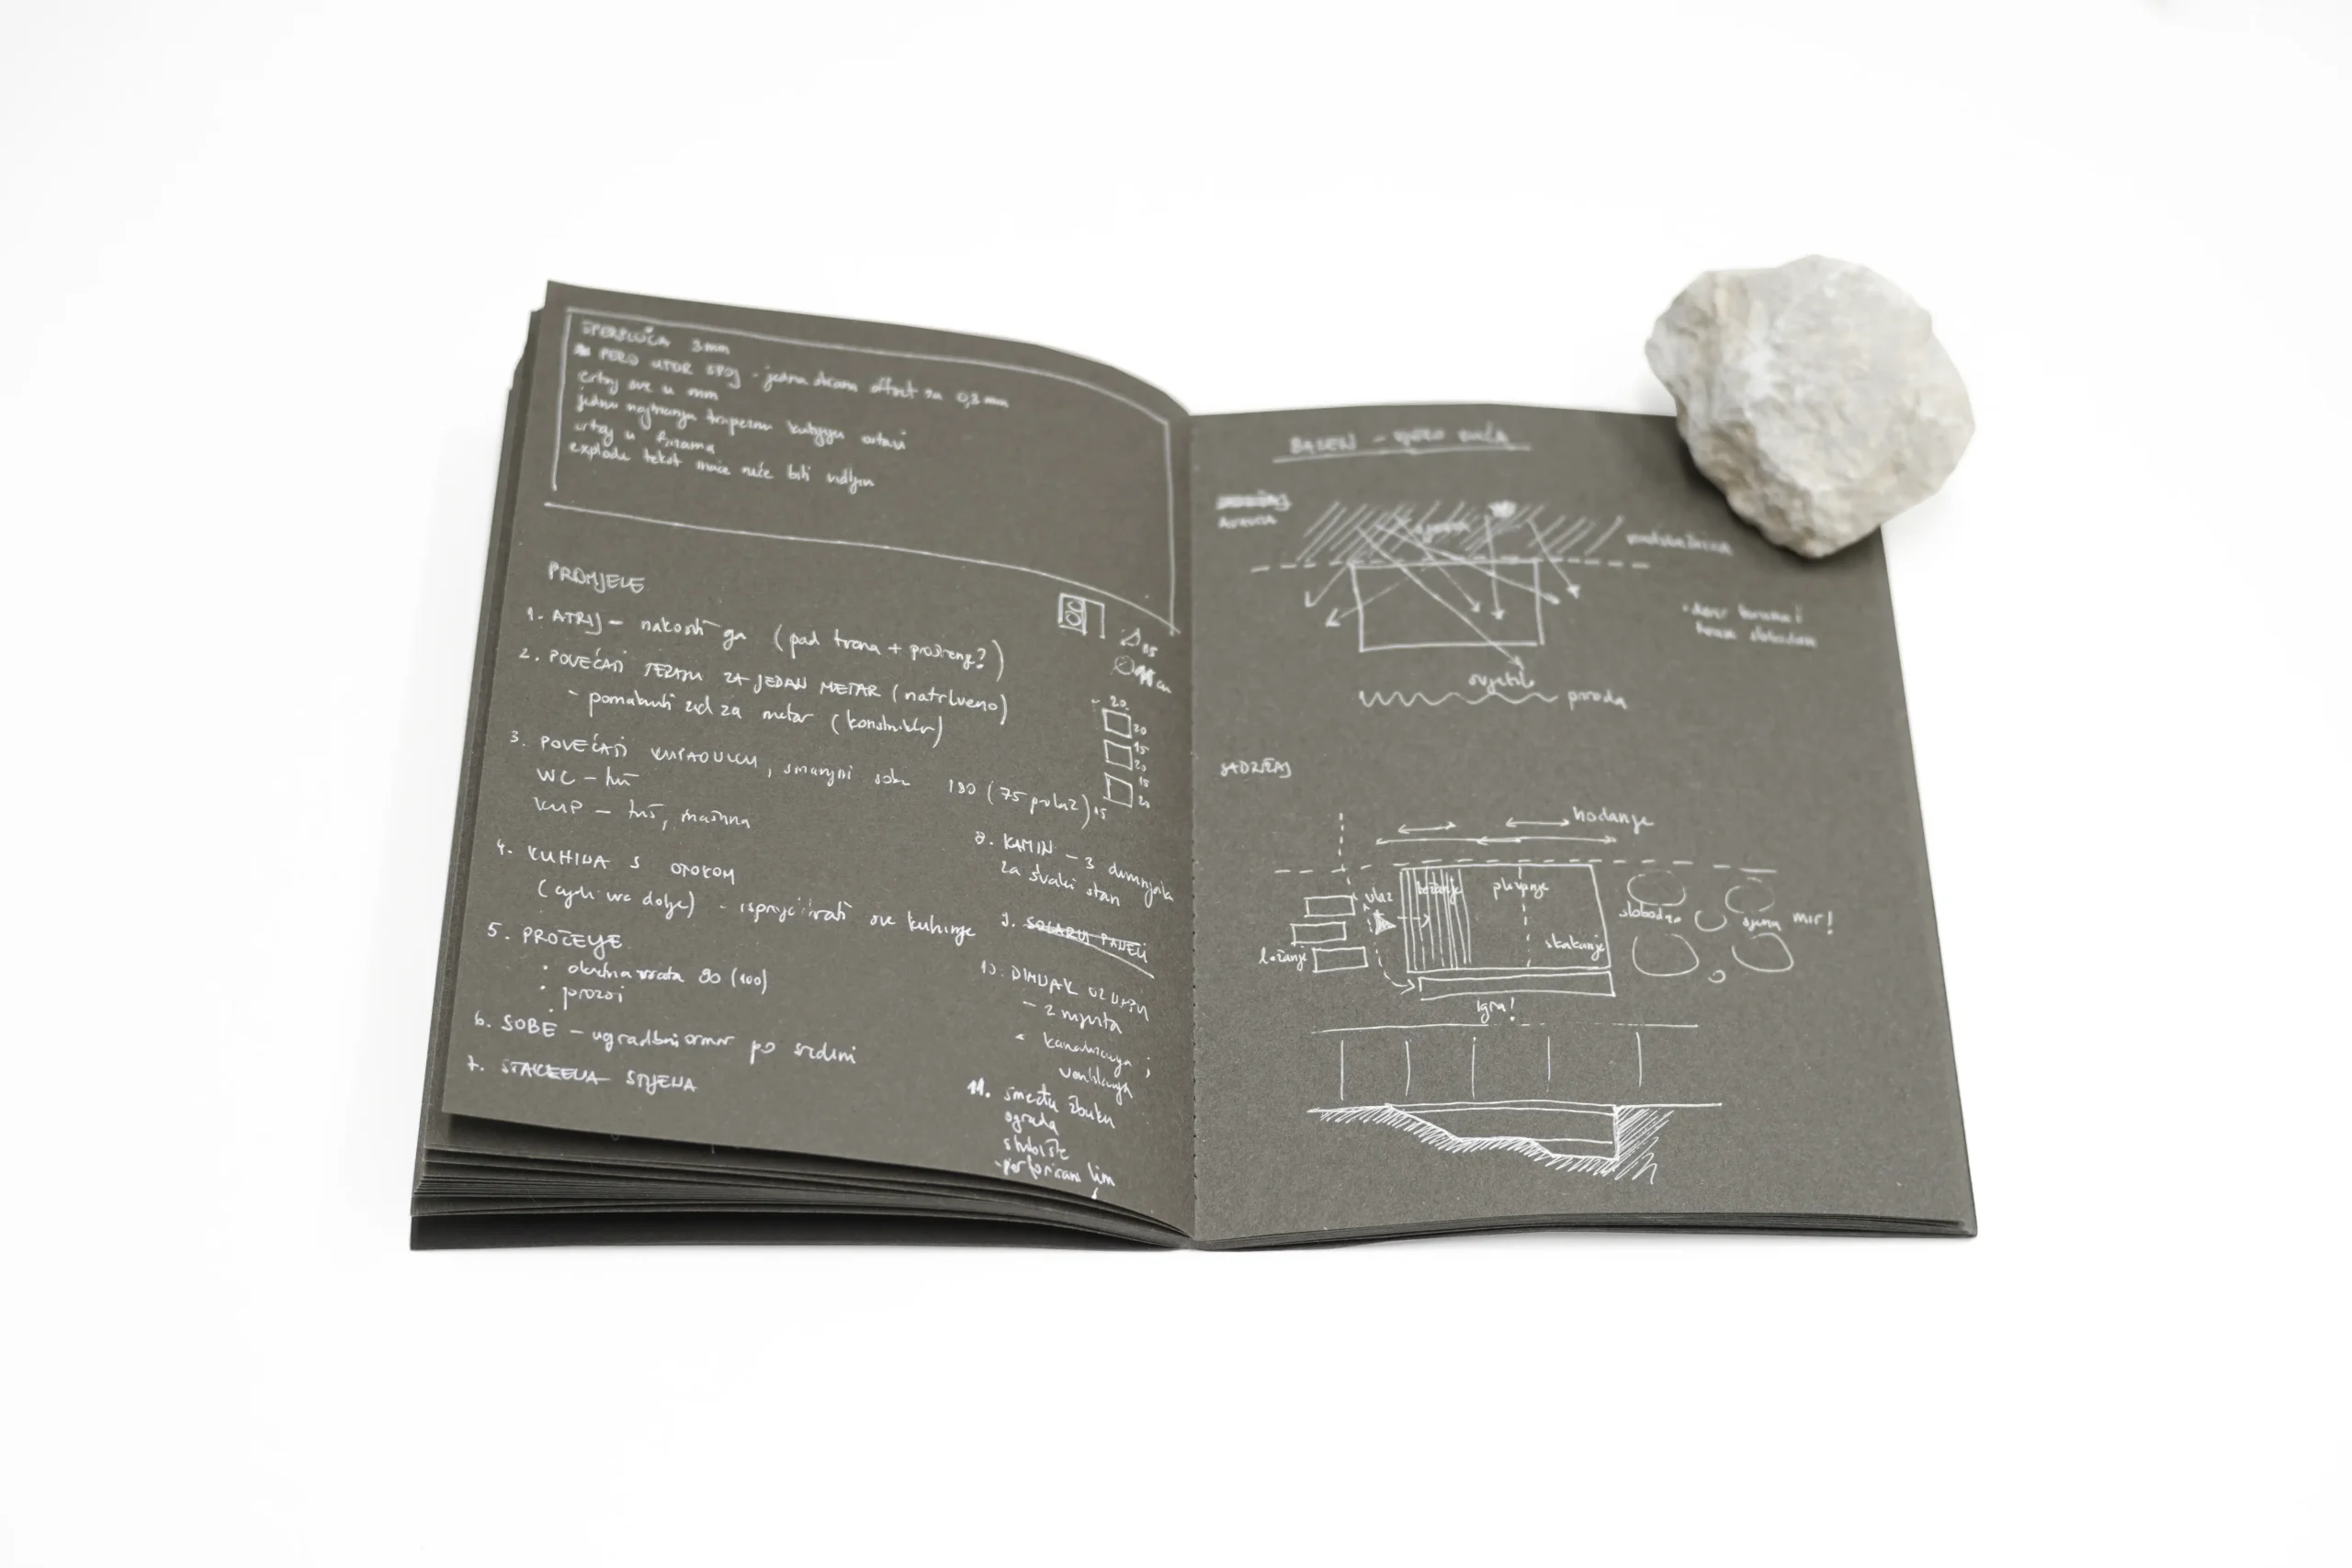 ŠPERPLOČA 3mm
PERO UTOR SPOJ - jedna strana offset za 0,3 mm
crtaj sve u mm
jednu najmanju trapeznu kutiju ostavi
crtaj u
explode tekst inače neće biti vidljiv
PROMJENE
1. ATRIJ - nakositi ga (pad trona + proširenj?)
2. POVEĆATI TERASU ZA JEDAN METAR (natkriveno)
- pomaknuti zid za metar (konstrukter)
3. POVEĆATI KUPAONICU, smanjiti sobe 180 (75 prolaz)
WC - tuš
KUP - tuš, mašina
4. KUHINJA S OTOKOM
(cijeli wc dolje) - isprojektirati sve kuhinje
5. PROČELJE
• okretna vrata 90 (100)
• prozori
6. SOBE - ugradbeni ormar po sredini
7. STAKLENA STIJENA
85
20
20
15
20
15
20
15
8. KAMIN - 3 dimnjaka
za svaki stan
9. SOLARNI PANELI
10. DIMNJAK
- 2 mjesta
kanalizacija i
ventilacija
11. smeđu žbuku
ograda
stubište
- perforirani lim
BAZEN -
svjetlo
priroda
SADRŽAJ
hodanje
ulaz
ležanje
plivanje
skakanje
ležanje
slobodno
sjena
mir!
igra!